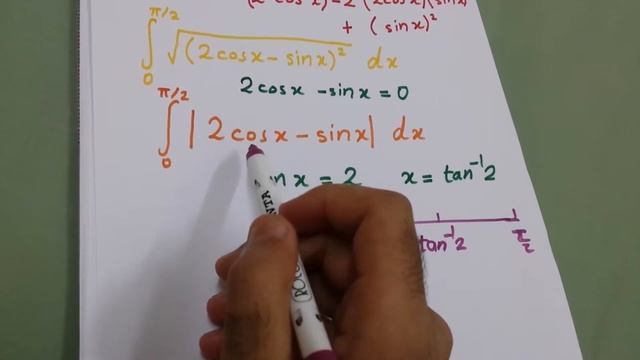 (2cosx)-2(2cosx)(sinx)
+ (sinx)²
∫₀^π/2 √(2cosx - sinx)² dx
2cosx - sinx = 0
∫₀^π/2 |2cosx - sinx| dx
x = 2 x = tan⁻¹2
tan⁻¹2 π/2